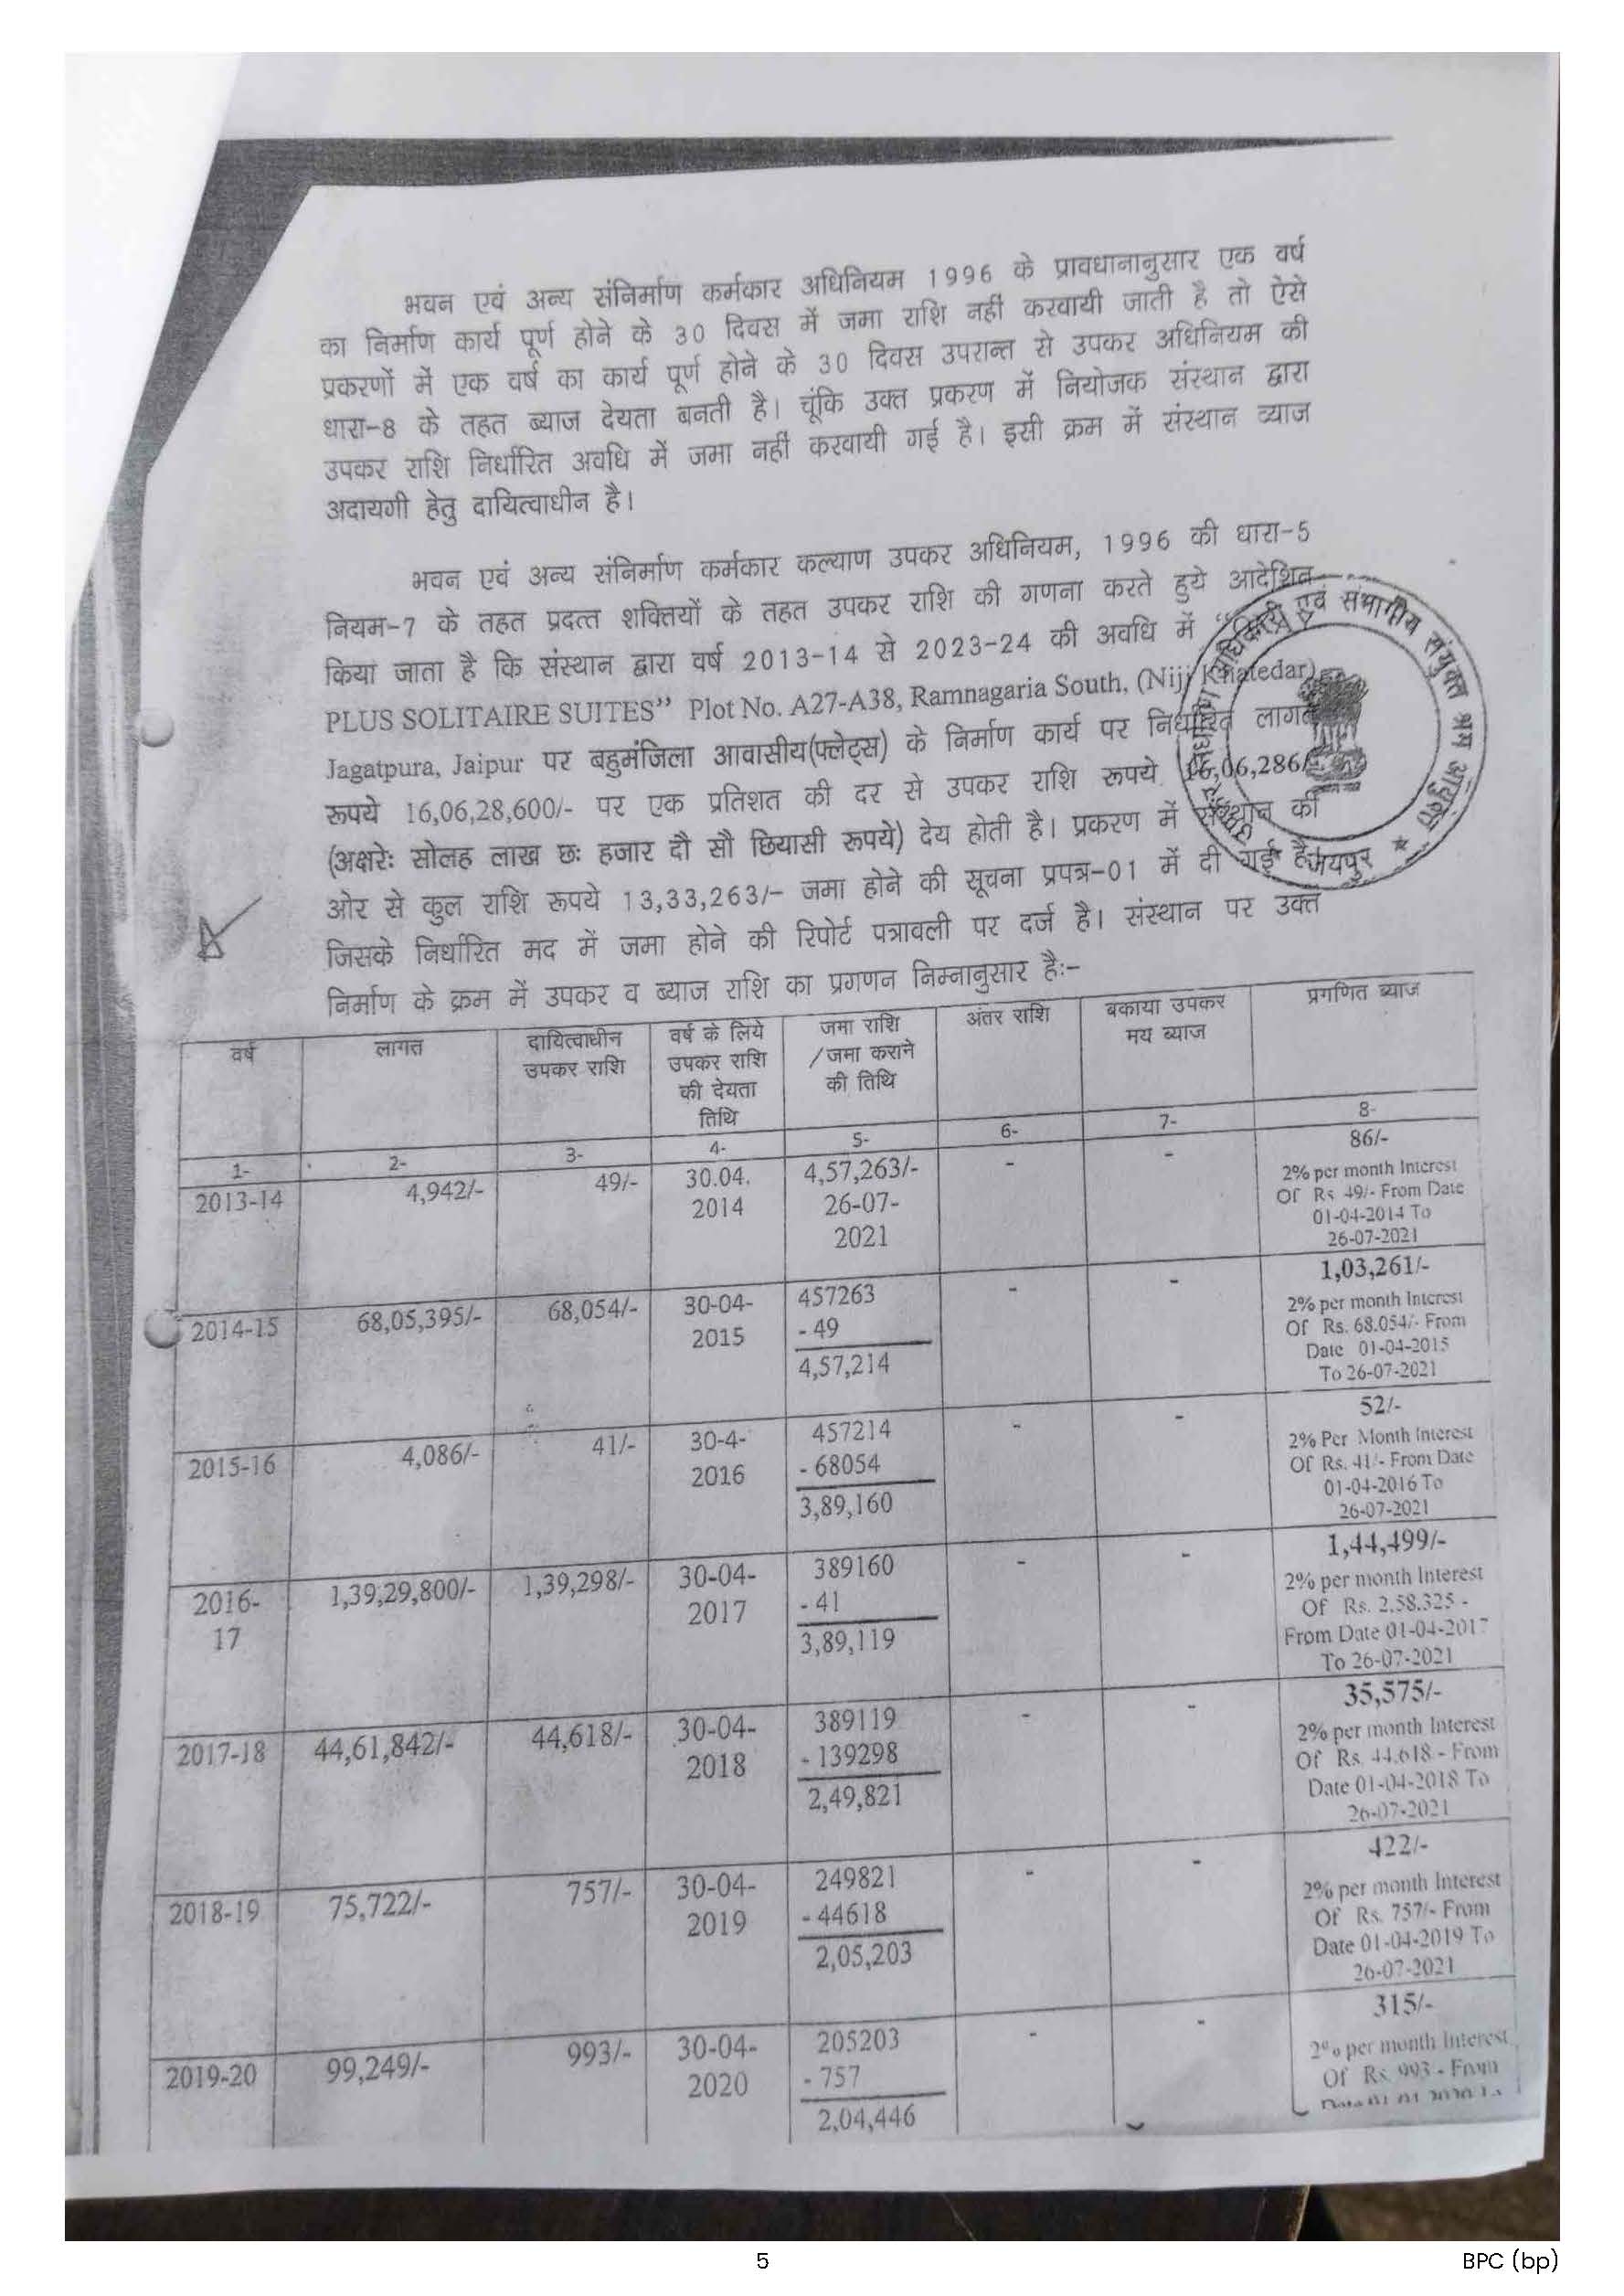 भवन एवं अन्य संनिर्माण कर्मकार अधिनियम 1996 के प्रावधानानुसार एक वर्ष
का निर्माण कार्य पूर्ण होने के 30 दिवस में जमा राशि नहीं करवायी जाती है तो ऐसे
प्रकरणों में एक वर्ष का कार्य पूर्ण होने के 30 दिवस उपरान्त से उपकर अधिनियम की
धारा-8 के तहत ब्याज देयता बनती है। चूंकि उक्त प्रकरण में नियोजक संस्थान द्वारा
उपकर राशि निर्धारित अवधि में जमा नहीं करवायी गई है। इसी क्रम में संस्थान ब्याज
अदायगी हेतु दायित्वाधीन है।
भवन एवं अन्य संनिर्माण कर्मकार कल्याण उपकर अधिनियम, 1996 की धारा-5
नियम-7 के तहत प्रदत्त शक्तियों के तहत उपकर राशि की गणना करते हुये आदेशित
किया जाता है कि संस्थान द्वारा वर्ष 2013-14 से 2023-24 की अवधि में
PLUS SOLITAIRE SUITES” Plot No. A27-A38, Ramnagaria South, (Niji Khatedar)
Jagatpura, Jaipur पर बहुमंजिला आवासीय(फ्लेट्स) के निर्माण कार्य पर निर्धारित लागत
रूपये 16,06,28,600/- पर एक प्रतिशत की दर से उपकर राशि रूपये 16,06,286/-
(अक्षरेः सोलह लाख छः हजार दौ सौ छियासी रूपये) देय होती है। प्रकरण में संस्थान की
ओर से कुल राशि रूपये 13,33,263/- जमा होने की सूचना प्रपत्र-01 में दी गई है।
जिसके निर्धारित मद में जमा होने की रिपोर्ट पत्रावली पर दर्ज है। संस्थान पर उक्त
निर्माण के क्रम में उपकर व ब्याज राशि का प्रगणन निम्नानुसार हैः-
एवं संभागीय संयुक्त श्रम आयुक्त
★ जयपुर
वर्ष लागत दायित्वाधीन वर्ष के लिये जमा राशि अंतर राशि बकाया उपकर प्रगणित ब्याज
उपकर राशि उपकर राशि /जमा कराने मय ब्याज
की देयता की तिथि
तिथि
1- 2- 3- 4- 5- 6- 7- 8-
2013-14 4,942/- 49/- 30.04. 4,57,263/- - - 86/-
2014 26-07- 2% per month Interest
2021 Of Rs 49/- From Date
01-04-2014 To
26-07-2021
2014-15 68,05,395/- 68,054/- 30-04- 457263 - - 1,03,261/-
2015 - 49 2% per month Interest
4,57,214 Of Rs. 68.054/- From
Date 01-04-2015
To 26-07-2021
2015-16 4,086/- 41/- 30-4- 457214 - - 52/-
2016 - 68054 2% Per Month Interest
3,89,160 Of Rs. 41/- From Date
01-04-2016 To
26-07-2021
2016- 1,39,29,800/- 1,39,298/- 30-04- 389160 - - 1,44,499/-
17 2017 - 41 2% per month Interest
3,89,119 Of Rs. 2.58.325 -
From Date 01-04-2017
To 26-07-2021
2017-18 44,61,842/- 44,618/- 30-04- 389119 - - 35,575/-
2018 - 139298 2% per month Interest
2,49,821 Of Rs. 44.618 - From
Date 01-04-2018 To
26-07-2021
2018-19 75,722/- 757/- 30-04- 249821 - - 422/-
2019 - 44618 2% per month Interest
2,05,203 Of Rs. 757/- From
Date 01-04-2019 To
26-07-2021
2019-20 99,249/- 993/- 30-04- 205203 - - 315/-
2020 - 757 2% per month Interest
2,04,446 Of Rs. 993 - From
5
BPC (bp)